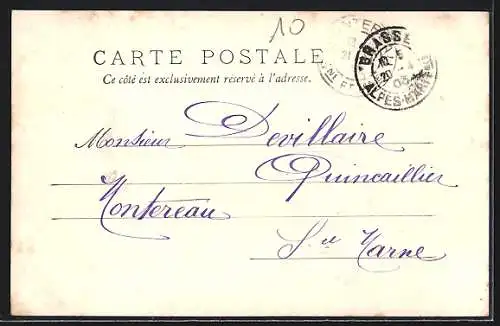 10
CARTE POSTALE
Ce côté est exclusivement réservé à l'adresse.
GRASSE
10 - 5
20 4
03
ALPES-MARITIMES
Monsieur Devillaire
Quincaillier
Montereau
S. et Marne